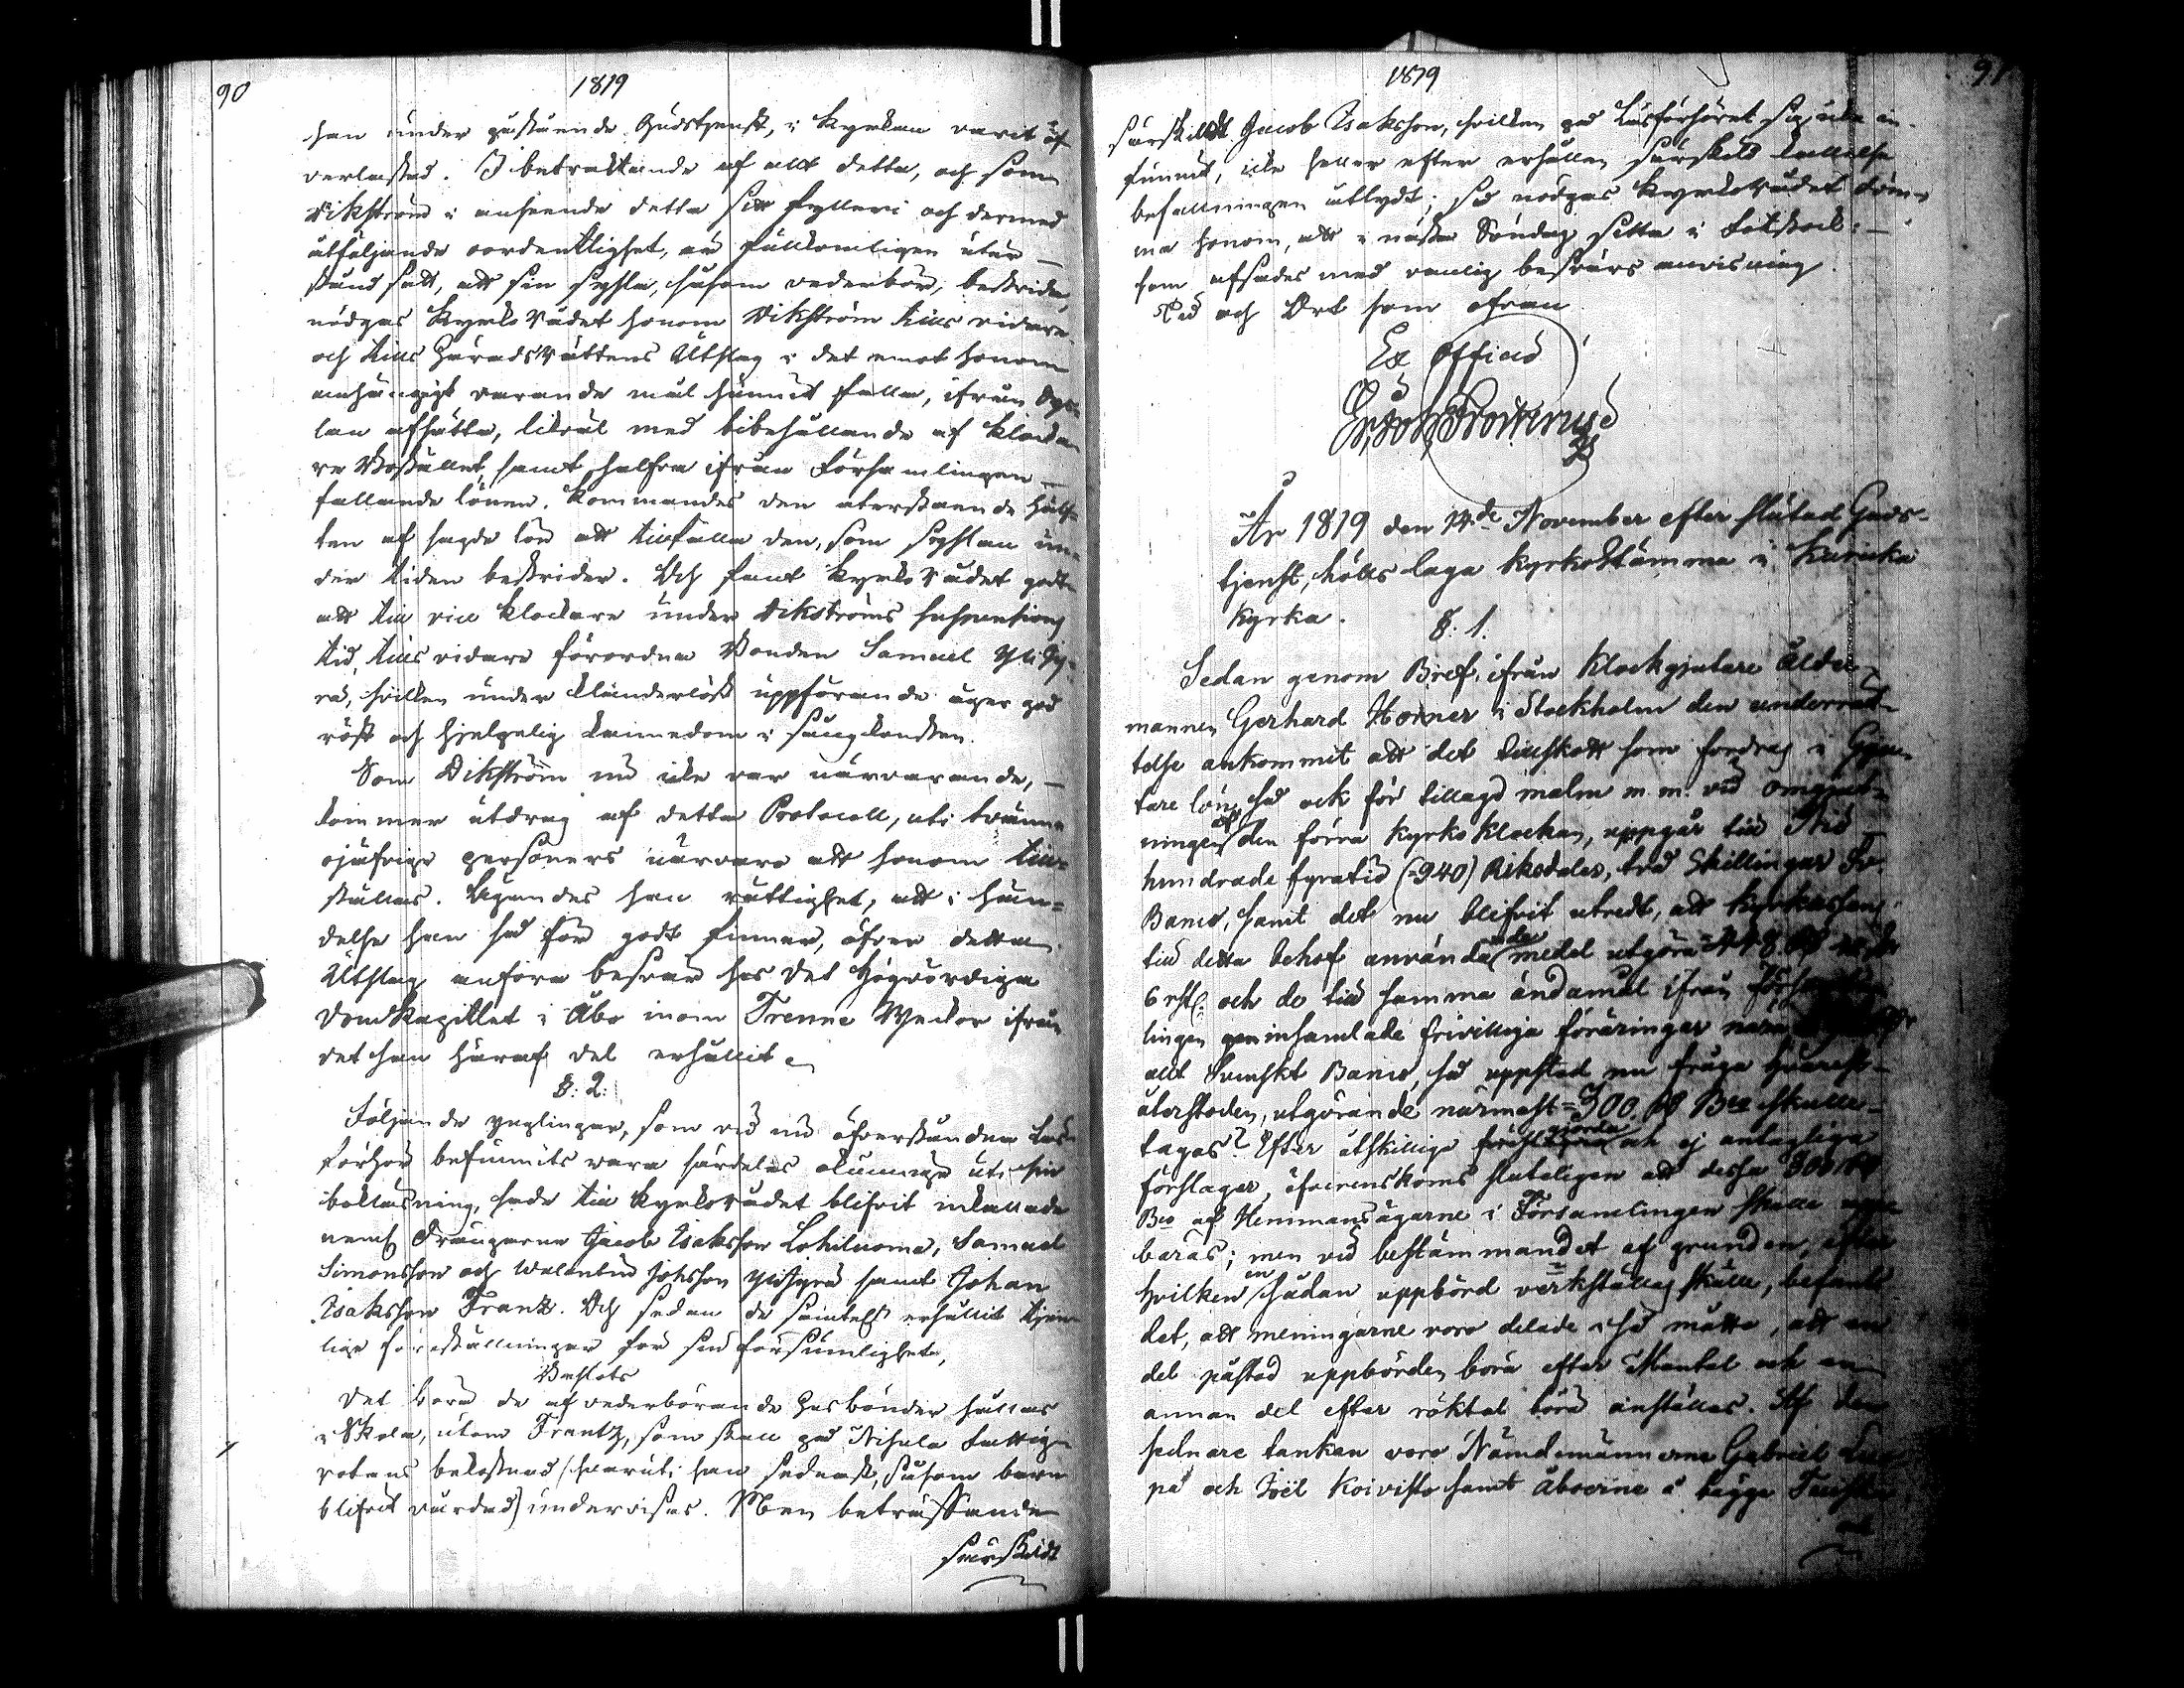 90
1819
han under påstående Gudstjenst, i Kyrkan varit öf
verlastad. I betraktande af allt detta, och som
Wikström i anseende detta sitt fylleri och dermed
åtföljande oordentlighet, är fullkomligen utur
stånd satt, att sin sysla, såsom vederbör, bestrida,
nödgas Kyrko Rådet honom Wikström tills vidare
och tills HäradsRättens Utslag i det emot honom
anhängigt varande mål hunnit falla, ifrån Sys-
lan afsätta, likväl med bibehållande af klocka
re Bostället, samt halfva ifrån Församlingen
fallande lönen. Kommandes den återstående Hälf-
ten af sagde lön att tillfalla den, som syslan un-
der tiden bestrider. Och fant Kyrko Rådet godt
att till vice klockare under Wikströms suspensions
tid, tills vidare förordna Bonden Samuel Yli
rä, hvilken under klanderlöst uppförande äger god
röst och hjelpelig kännedom i sångkonsten.
Som Wikström nu icke var närvarande,
kommer utdrag af detta Protocoll, uti tvänne
ojäfvige personers närvaro att honom till-
ställas. Ägandes han rättighet, att i hän-
delse han så för godt finner, öfver detta
Utslag anföra besvär hos Det Högvördiga
DomKapitlet i Åbo inom Trenne Weckor ifrån
det han häraf del erhållit.
§: 2:
Följande ynglingar, som vid nu öfverståndna Läs-
förhör befunnits vara särdeles okunnige uti sin
bokläsning, hade till Kyrkorådet blifvit inkallade
neml Drängarne Jacob Isaksson Lohiluoma, Samuel
Simonsson och Walentin Johsson Ylijyrä samt Johan
Isaksson Frantz. Och sedan de samtel erhållit tjen-
lige föreställningar för sin försumlighet,
Beslöts
Det borde de af vederbörande Husbönder hållas
i Skola, utom Frantz, som skall på Nisula Fattig-
rotans bekostnad (hvaruti han sednast, såsom barn
blifvit vårdad) undervisas. Men beträffande
särskildt
91
1819
särskildt Jacob Isaksson, hvilken på Läsförhöret sig icke in-
funnit, icke heller efter erhållen särskild kallelse
befallningen åtlydt; så nödgas KyrkoRådet döm-
ma honom, att i nästa Söndag sitta i Fotstock:
som afsades med vanlig besvärs anvisning.
Tid och Ort som ofvan
Ex Officio
År 1819 den 14de November efter slutad Guds-
tjenst, hölls laga KyrkoStämma i Kauricka
Kyrka.
§: 1.
Sedan genom Bref ifrån Klockgjutare Ålder-
mannen Gerhard Horner i Stockholm den underrät-
telse ankommit att det tillskott som fordras i Gju-
tare lön, så ock för tillagd malm m. m. vid omgjut-
ningen af den förra KyrkoKlockan, uppgår till Nio
hundrade fyratio (=940) Riksdaler, två Skillingar Sv.
Banco, samt det nu blifvit utredt, att Kyrkassans
till detta behof använda medel utgöra
6 rst. och de till samma ändamål ifrån Försam-
lingen insamlade frivilliga föräringar
allt Svenskt Banco, så uppstod nu fråga hvarest
återstoden, utgörande närmast =300 Rd Bco skulle
tagas? Efter åtskillige gjorda och ej antagliga
förslager, öfverenskoms sluteligen att dessa 300 Rd
Bco af Hemmansägarne i Församlingen skulle upp-
bäras; men vid bestämmandet af grunden, efter
hvilken en sådan uppbörd verkställas skulle, befants
det, att meningarne voro delade i så måtto, att en
del påstod uppbörden böra efter Mantal och en
annan del efter röktal böra anställas. Af den
sednare tankan voro Nämdemännerne Gabriel
pä och Joël Koivisto samt Åboerne å bägge